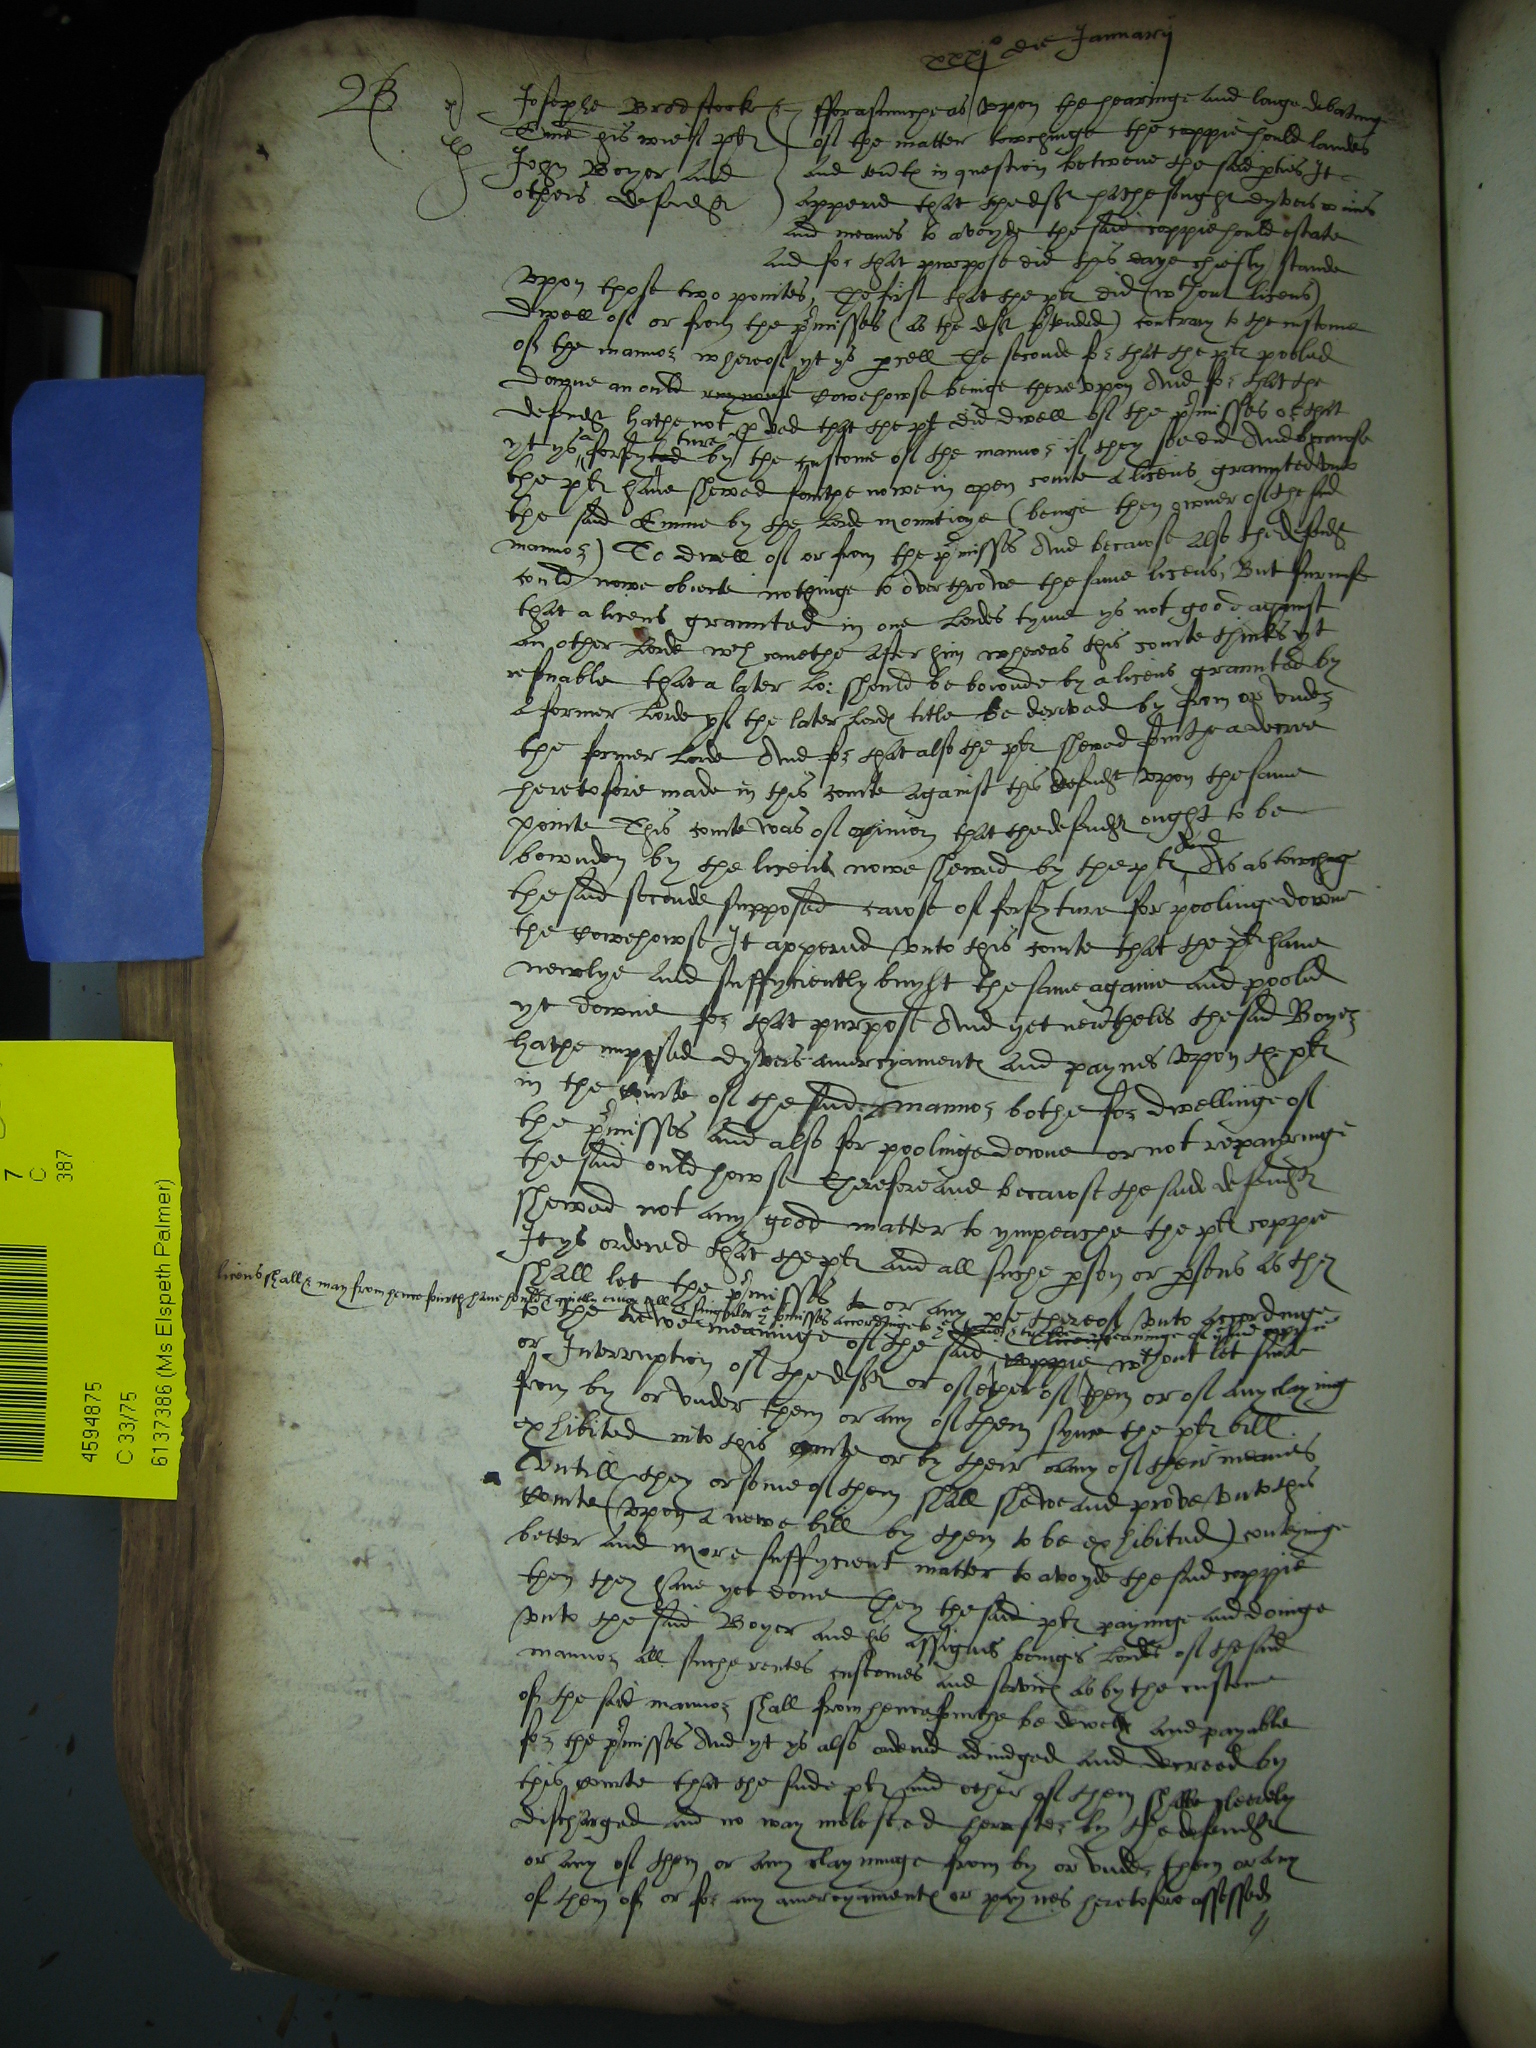 xxxjo die Januarij
Josephe Bredstocke &
Emme his wief pltes
John Boyer and
others defendtes
fforasmuche as vpon the hearinge and longe debatinge
of the matter towchinge the coppiehould landes
and tentes in question betwene the said pties It
appered that the deftes hathe sought dyvers waies
and meanes to avoyde the said coppiehould estate
and for that purpose did this daye chiefly stande
vpon those two pointes, The first that the plt did (wthout licens)
dwell of or from the pmisses (as the deft ptended) contrary to the custome
of the mannor whereof yt ys pcell The seconde for that the plt pooled
downe an ould cowehowse beinge therevpon And for that the
defendt hathe not pved that the plt did dwell of the pmisses or that
yt ys a forfeyture by the custome of the mannor if they soe did And because
the pltes have shewed fourthe nowe in open courte a licens graunted vnto
the said Emme by the Lorde mountioye (beinge then owner of the said
mannor) To dwell of or from the pmisses And because also the defendt
could nowe obiecte nothinge to overthrowe the same licens, But surmise
that a licens graunted in one Lordes tyme ys not good against
an other Lorde wch comethe after him whereas this courte thinkes yt
resonable that a later Lo: should be bounde by a licens graunted by
a former Lorde yf the later Lordes title be deryved by from or vnder
the former Lorde And for that also the plt shewed fourthe a decree
heretofore made in this courte against this defendt vpon the same
pointe This courte was of opinion that the defendt ought to be
bownden by the licens nowe shewed by the plt And as towching
the said seconde supposed cawse of forfeyture for poolinge downe
the cowehowse It appered vnto this courte that the plt have
newlye and suffyciently buylt the same againe and pooled
yt downe for that purpose And yet nevertheles the said Boyer
hathe imposed dyvers amercyamentes and paynes vpon the plt
in the courte of the said mannor bothe for dwellinge of
the pmisses and also for poolinge downe or not repayringe
the said ould howse Therefore and because the said defendt
shewed not any good matter to ympeache the plt coppie
It ys ordered that the plt and all suche pson or psons as they
shall let the pmisses or any pte thereof vnto accordinge
licens shall & may from hence fourth have hould & all & singuler pmisses accordinge to meaninge of said
to the trewe meaninge of the said coppie wthout let suite
or Interruption of the deft or of ether of them or of any clayming
from by or vnder them or any of them synce the plt bill
exhibited into this courte or by their or any of their meanes
Vntill they or some of them shall shewe and prove vnto this
courte (vpon a newe bill by them to be exhibited) conteyninge
better and more suffycient matter to avoyde the said coppie
then they have yet done They the said plt payinge and doinge
vnto the said Boyer and his assignes beinge Lordes of the said
mannor all suche rentes customes and services as by the custome
of the said mannor shall from hencefourthe be dewe and payable
for the pmisses And yt ys also ordered adiudged and decreed by
this courte that the saide plt and ether of them shalbe cleerely
discharged and no way molested herafter by the defendt
or any of them or any clayminge from by or vnder them or any
of them of or for any amercyamentes or paynes heretofore assessed
7
C
387
4594875
C 33/75
6137386 (Ms Elspeth Palmer)